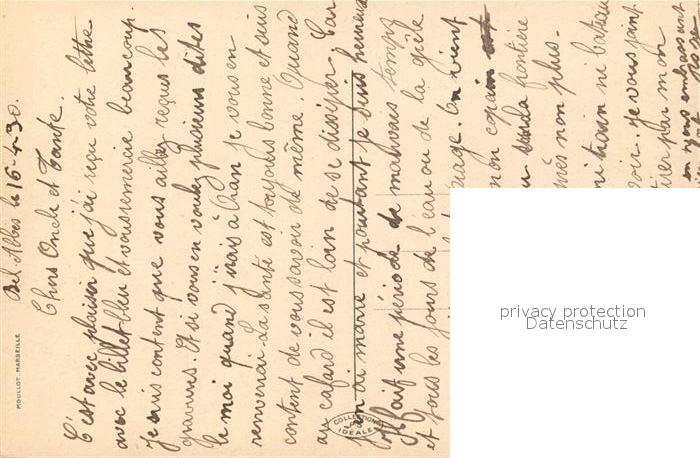 Bel Abbès le 16-4-30.
Chers Oncle et Tante.
C'est avec plaisir que j'ai reçu votre lettre
avec le billet bleu et vous remercie beaucoup.
Je suis content que vous aillez reçues les
gravures. Et si vous en voulez plusieurs dites
le moi quand j'irais à Oran je vous en
renverrai. La santé est toujours bonne et suis
content de vous savoir de même. Quand
au cafard il est loin de se dissiper. Car
j'en ai marre et pourtant je suis heureux
Il fait une période de mauvais temps
et tous les jours de l'eau ou de la grêle
orage. On vient
mon copain
frontière
non plus.
ni train ni bateau
voir. Je vous joint
par mon
en vous embrassant
MOULLOT-MARSEILLE
COLLECTION
IDÉALE
P S
privacy protection
Datenschutz